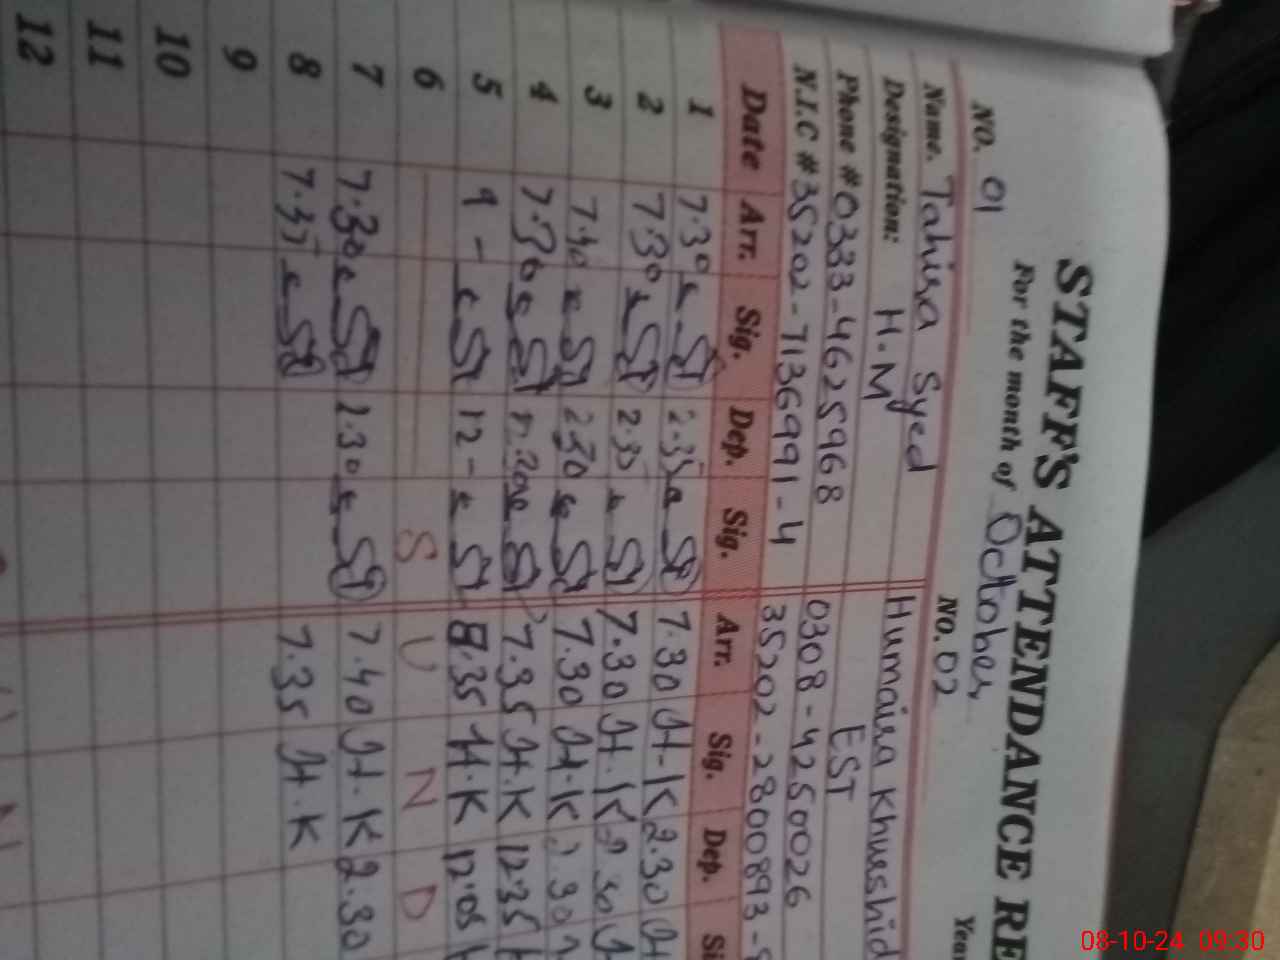 STAFF'S ATTENDANCE RE
For the month of October Year
NO. 01 NO. 02
Name. Tahira Syed Humaira Khurshid
Designation: H.M EST
Phone # 0333-4625968 0308-4250026
N.I.C # 35202-7136991-4 35202-2800893-
Date Arr. Sig. Dep. Sig. Arr. Sig. Dep. Si
1 7.30 2.35 7.30 H.K 2.30
2 7.30 2.35 7.30 H.K 2.30
3 7.40 2.30 7.30 H.K 2.30
4 7.30 12.30 7.35 H.K 12.35
5 9 - 12 - 8.35 H.K 12.05
6 S U N D
7 7.30 2.30 7.40 H.K 2.30
8 7.35 7.35 H.K
9
10
11
12
08-10-24 09:30